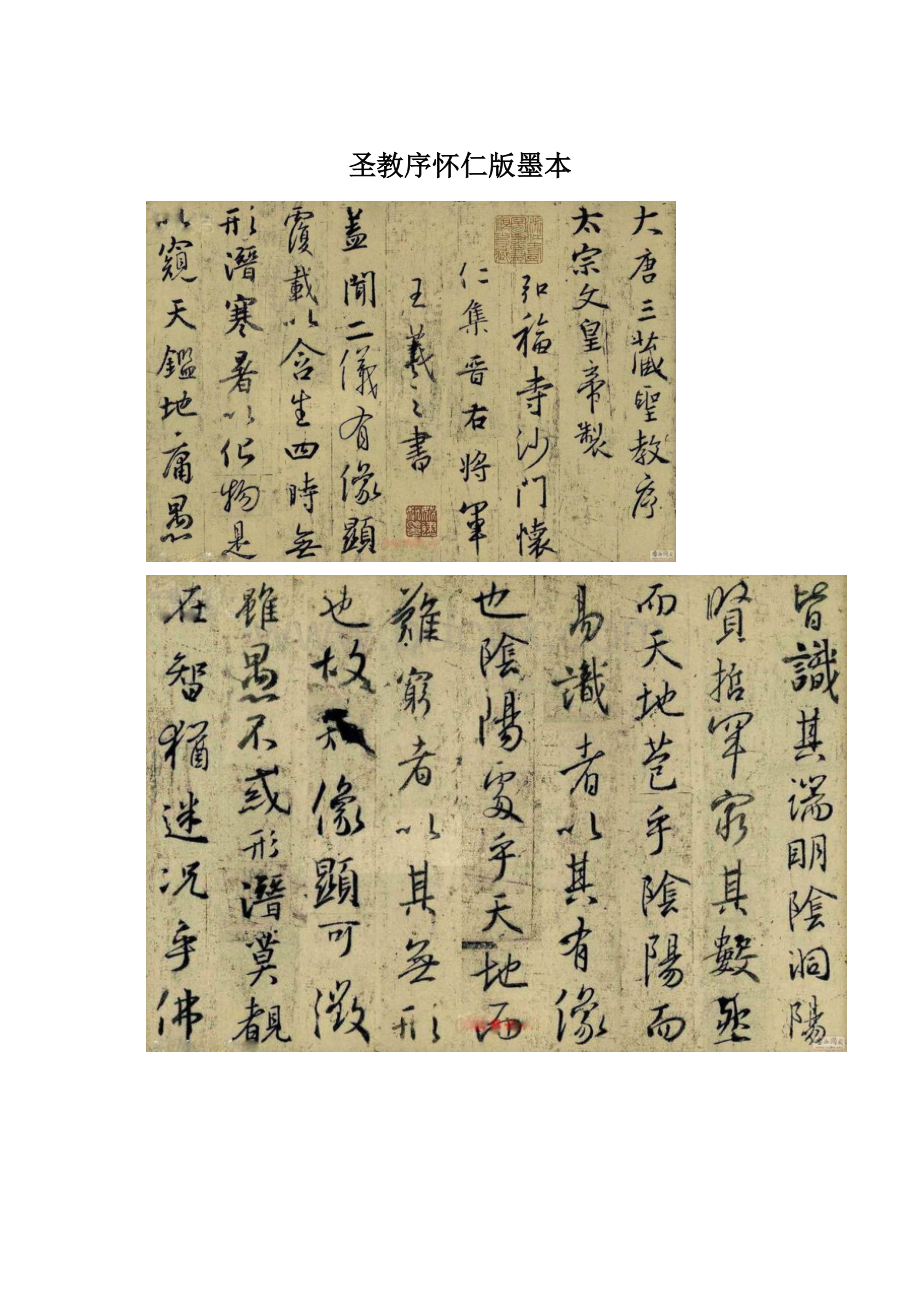 圣教序怀仁版墨本
大唐三藏聖教序
太宗文皇帝製
弘福寺沙門懷
仁集晉右將軍
王羲之書
蓋聞二儀有像顯
覆載以含生四時無
形潛寒暑以化物是
以窺天鑑地庸愚
皆識其端明陰洞陽
賢哲罕窮其數然
而天地苞乎陰陽而
易識者以其有像
也陰陽處乎天地而
難窮者以其無形
也故知像顯可徵
雖愚不惑形潛莫覩
在智猶迷況乎佛